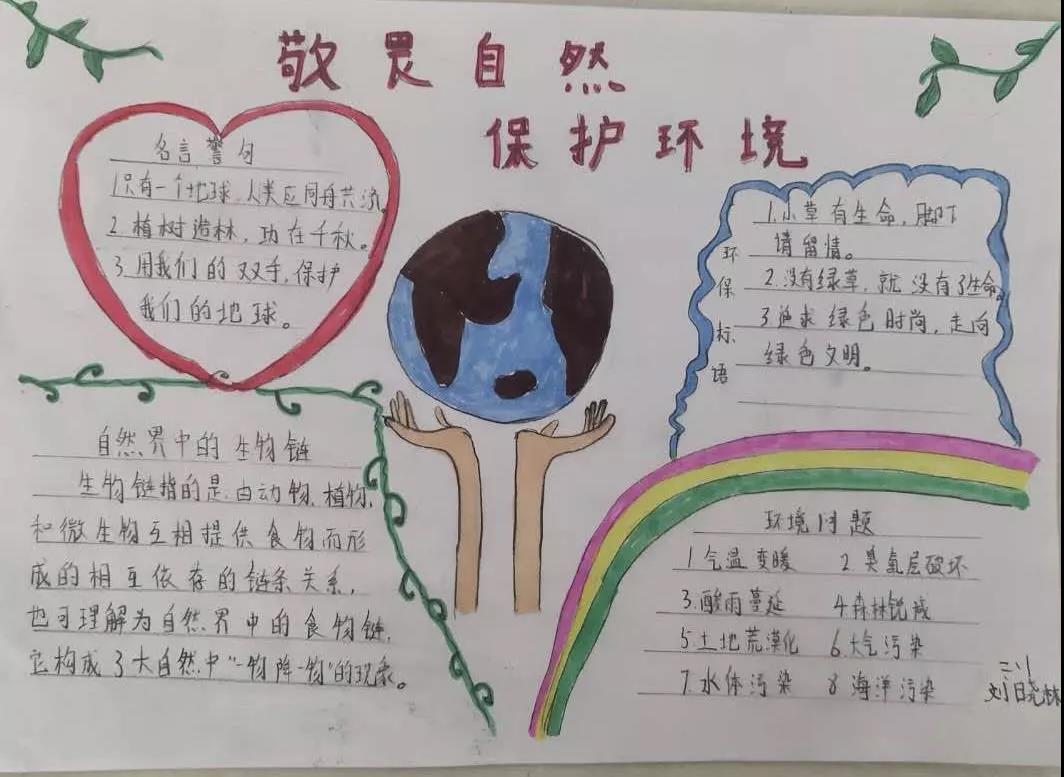 敬畏自然
保护环境
名言警句
1.只有一个地球,人类应同舟共济。
2.植树造林,功在千秋。
3.用我们的双手,保护
我们的地球。
环保标语
1.小草有生命,脚下
请留情。
2.没有绿草,就没有了生命。
3.追求绿色时尚,走向
绿色文明。
自然界中的生物链
生物链指的是:由动物、植物、
和微生物互相提供食物而形
成的相互依存的链条关系,
也可理解为自然界中的食物链,
它构成了大自然中“一物降一物”的现象。
环境问题
1气温变暖 2.臭氧层破坏
3.酸雨蔓延 4.森林锐减
5.土地荒漠化 6.大气污染
7.水体污染 8海洋污染
刘晓林